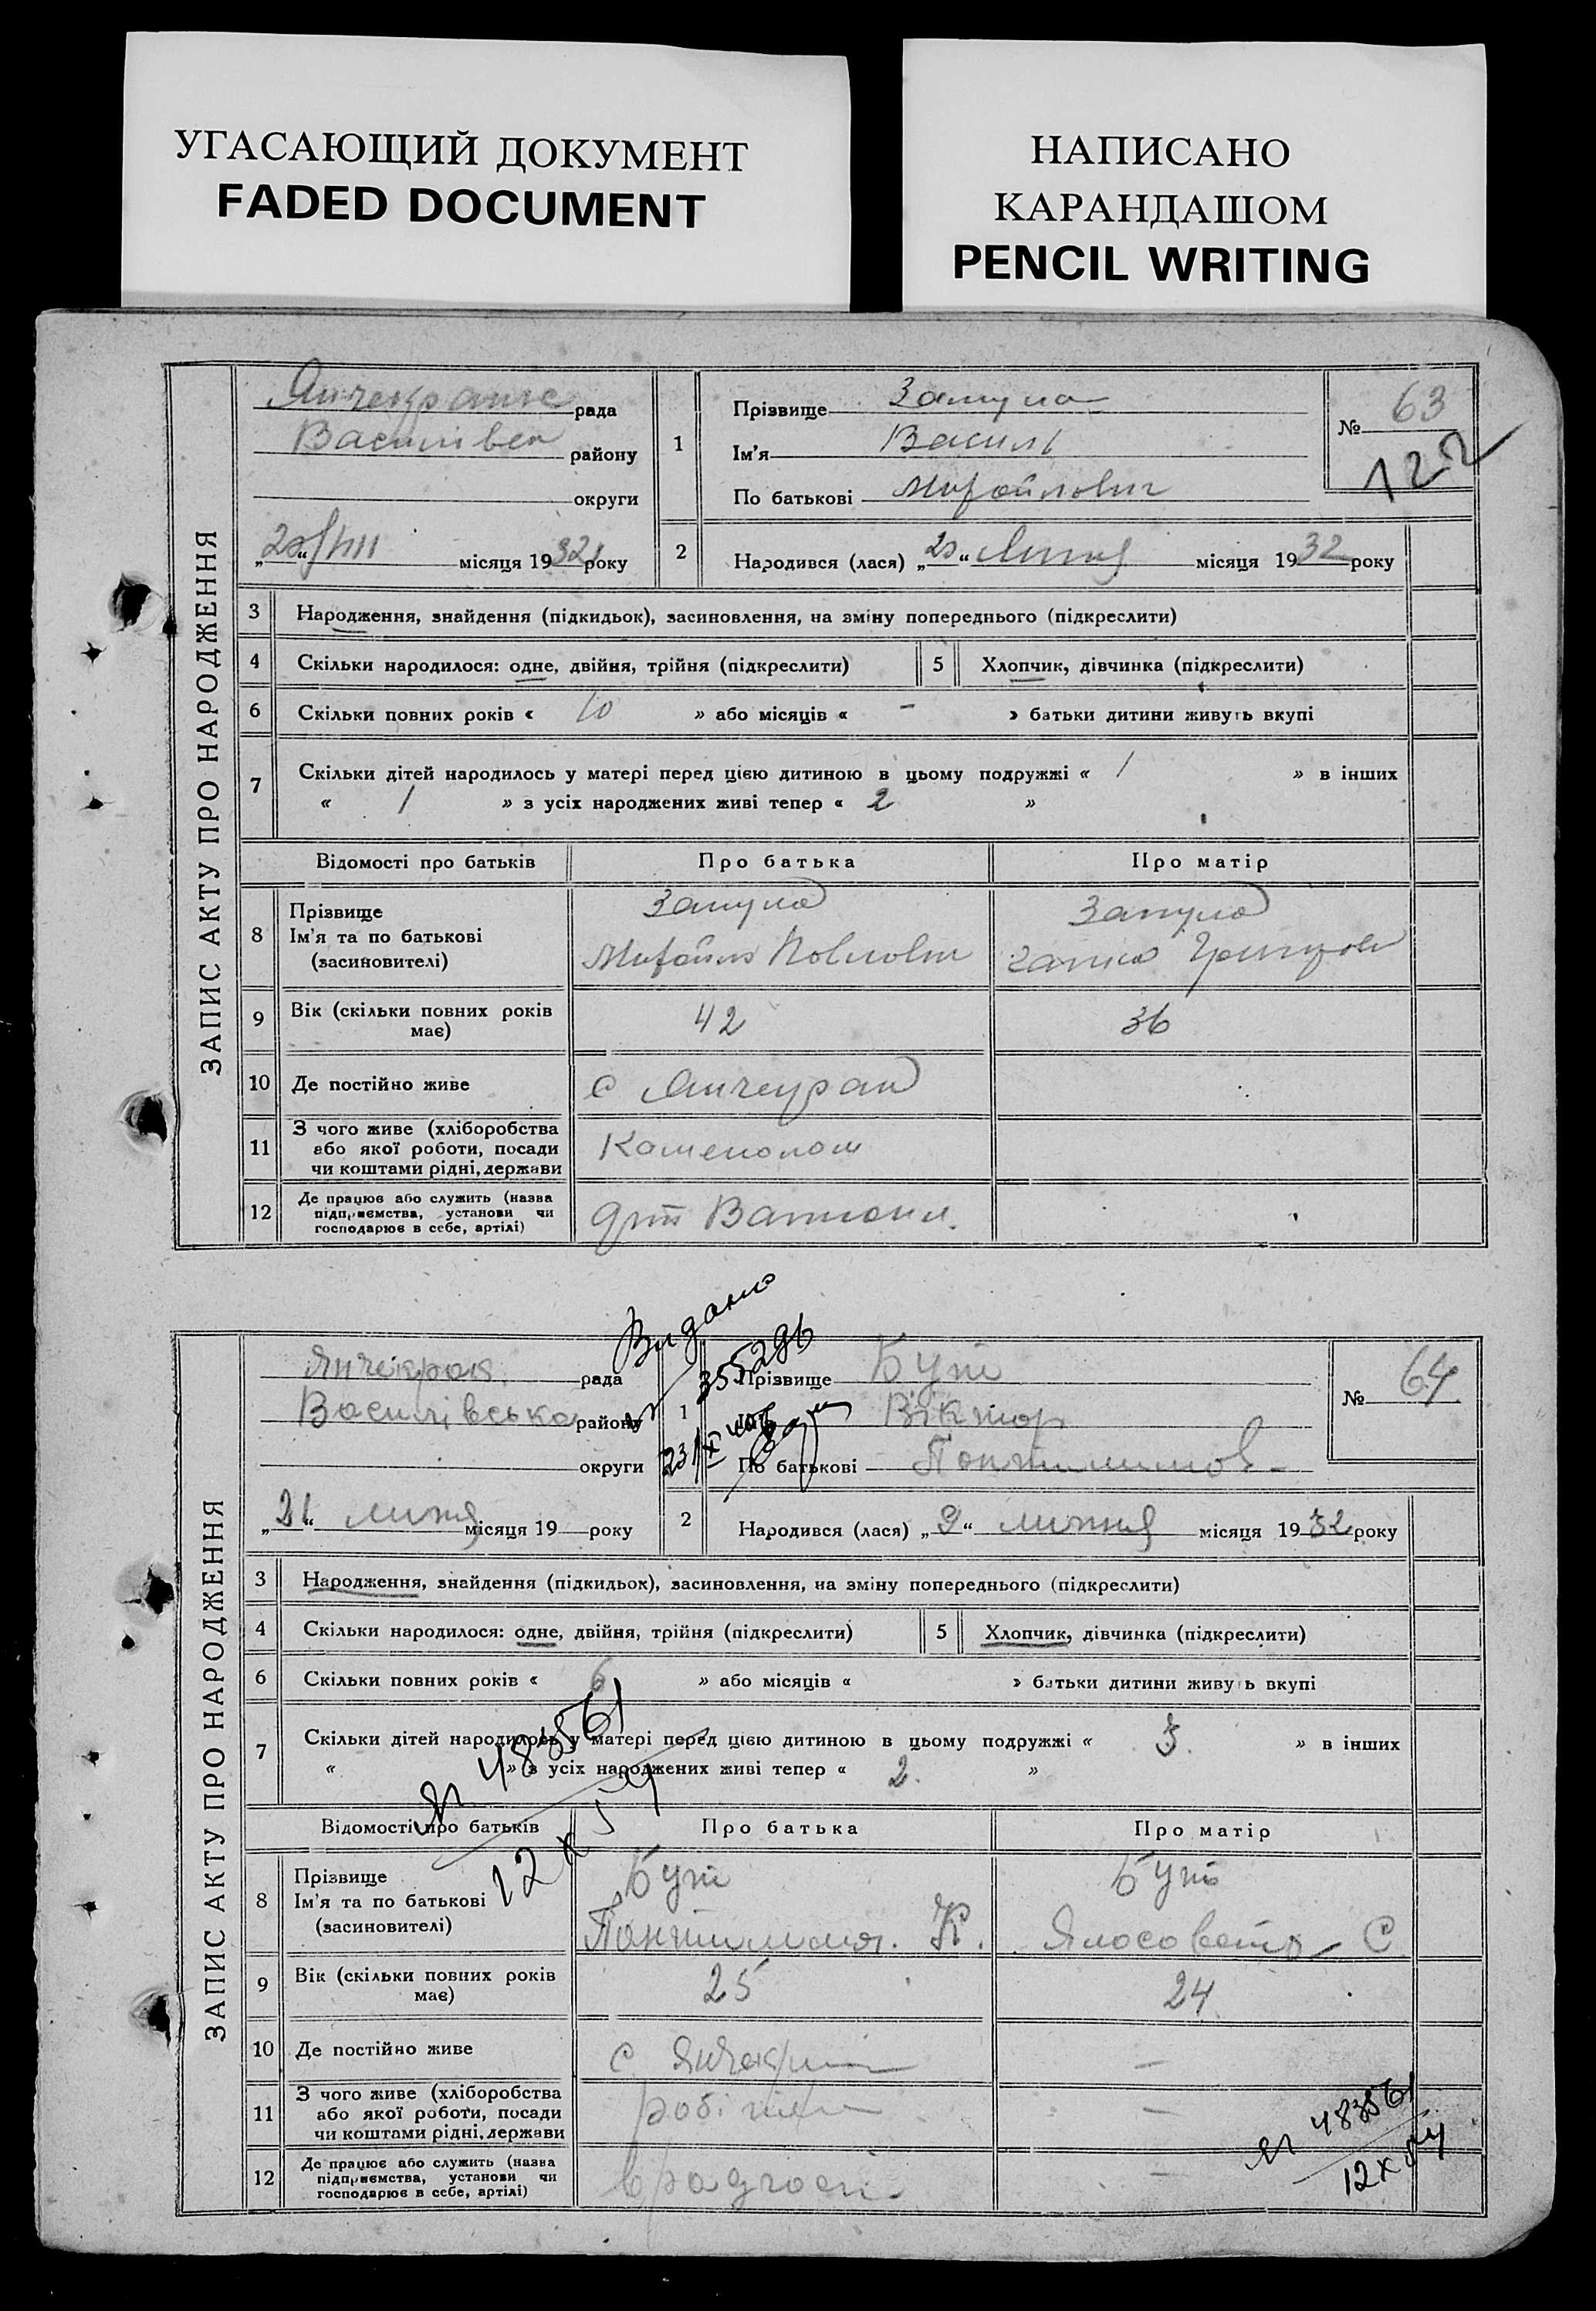 УГАСАЮЩИЙ ДОКУМЕНТ
FADED DOCUMENT
НАПИСАНО
КАРАНДАШОМ
PENCIL WRITING
ЗАПИС АКТУ ПРО НАРОДЖЕННЯ
рада
Василівськ району
округи
„20“ місяця 1932 року
1
Прізвище
Ім'я Василь
По батькові Михайлович
№ 63
122
2
Народився (лася) „20“ Липня місяця 1932 року
3 Народження, знайдення (підкидьок), засиновлення, на зміну попереднього (підкреслити)
4 Скільки народилося: одне, двійня, трійня (підкреслити) 5 Хлопчик, дівчинка (підкреслити)
6 Скільки повних років « 10 » або місяців « - » батьки дитини живуть вкупі
7 Скільки дітей народилось у матері перед цією дитиною в цьому подружжі « 1 » в інших
« 1 » з усіх народжених живі тепер « 2 »
Відомості про батьків Про батька Про матір
8 Прізвище
Ім'я та по батькові Михайло Павлович
(засиновителі)
9 Вік (скільки повних років має) 42 36
10 Де постійно живе с Янчекрак
11 З чого живе (хліборобства або якої роботи, посади чи коштами рідні, держави Каменолом
12 Де працює або служить (назва підприємства, установи чи господарює в себе, артілі)
Видано
355296
ЗАПИС АКТУ ПРО НАРОДЖЕННЯ
Янчекрак рада
Василівська району
округи
„21“ липня місяця 19 року
1
Прізвище Бут
Віктор
По батькові
№ 64
2
Народився (лася) „9“ липня місяця 1932 року
3 Народження, знайдення (підкидьок), засиновлення, на зміну попереднього (підкреслити)
4 Скільки народилося: одне, двійня, трійня (підкреслити) 5 Хлопчик, дівчинка (підкреслити)
6 Скільки повних років « 6 » або місяців « » батьки дитини живуть вкупі
7 Скільки дітей народилось у матері перед цією дитиною в цьому подружжі « 3 » в інших
« » з усіх народжених живі тепер « 2 »
483561
12 X 54
Відомості про батьків Про батька Про матір
8 Прізвище Бут Бут
Ім'я та по батькові
(засиновителі)
9 Вік (скільки повних років має) 25 24
10 Де постійно живе с Янчекрак —
11 З чого живе (хліборобства або якої роботи, посади чи коштами рідні, держави робітник —
12 Де працює або служить (назва підприємства, установи чи господарює в себе, артілі) в радгоспі —
483561
12 X 54